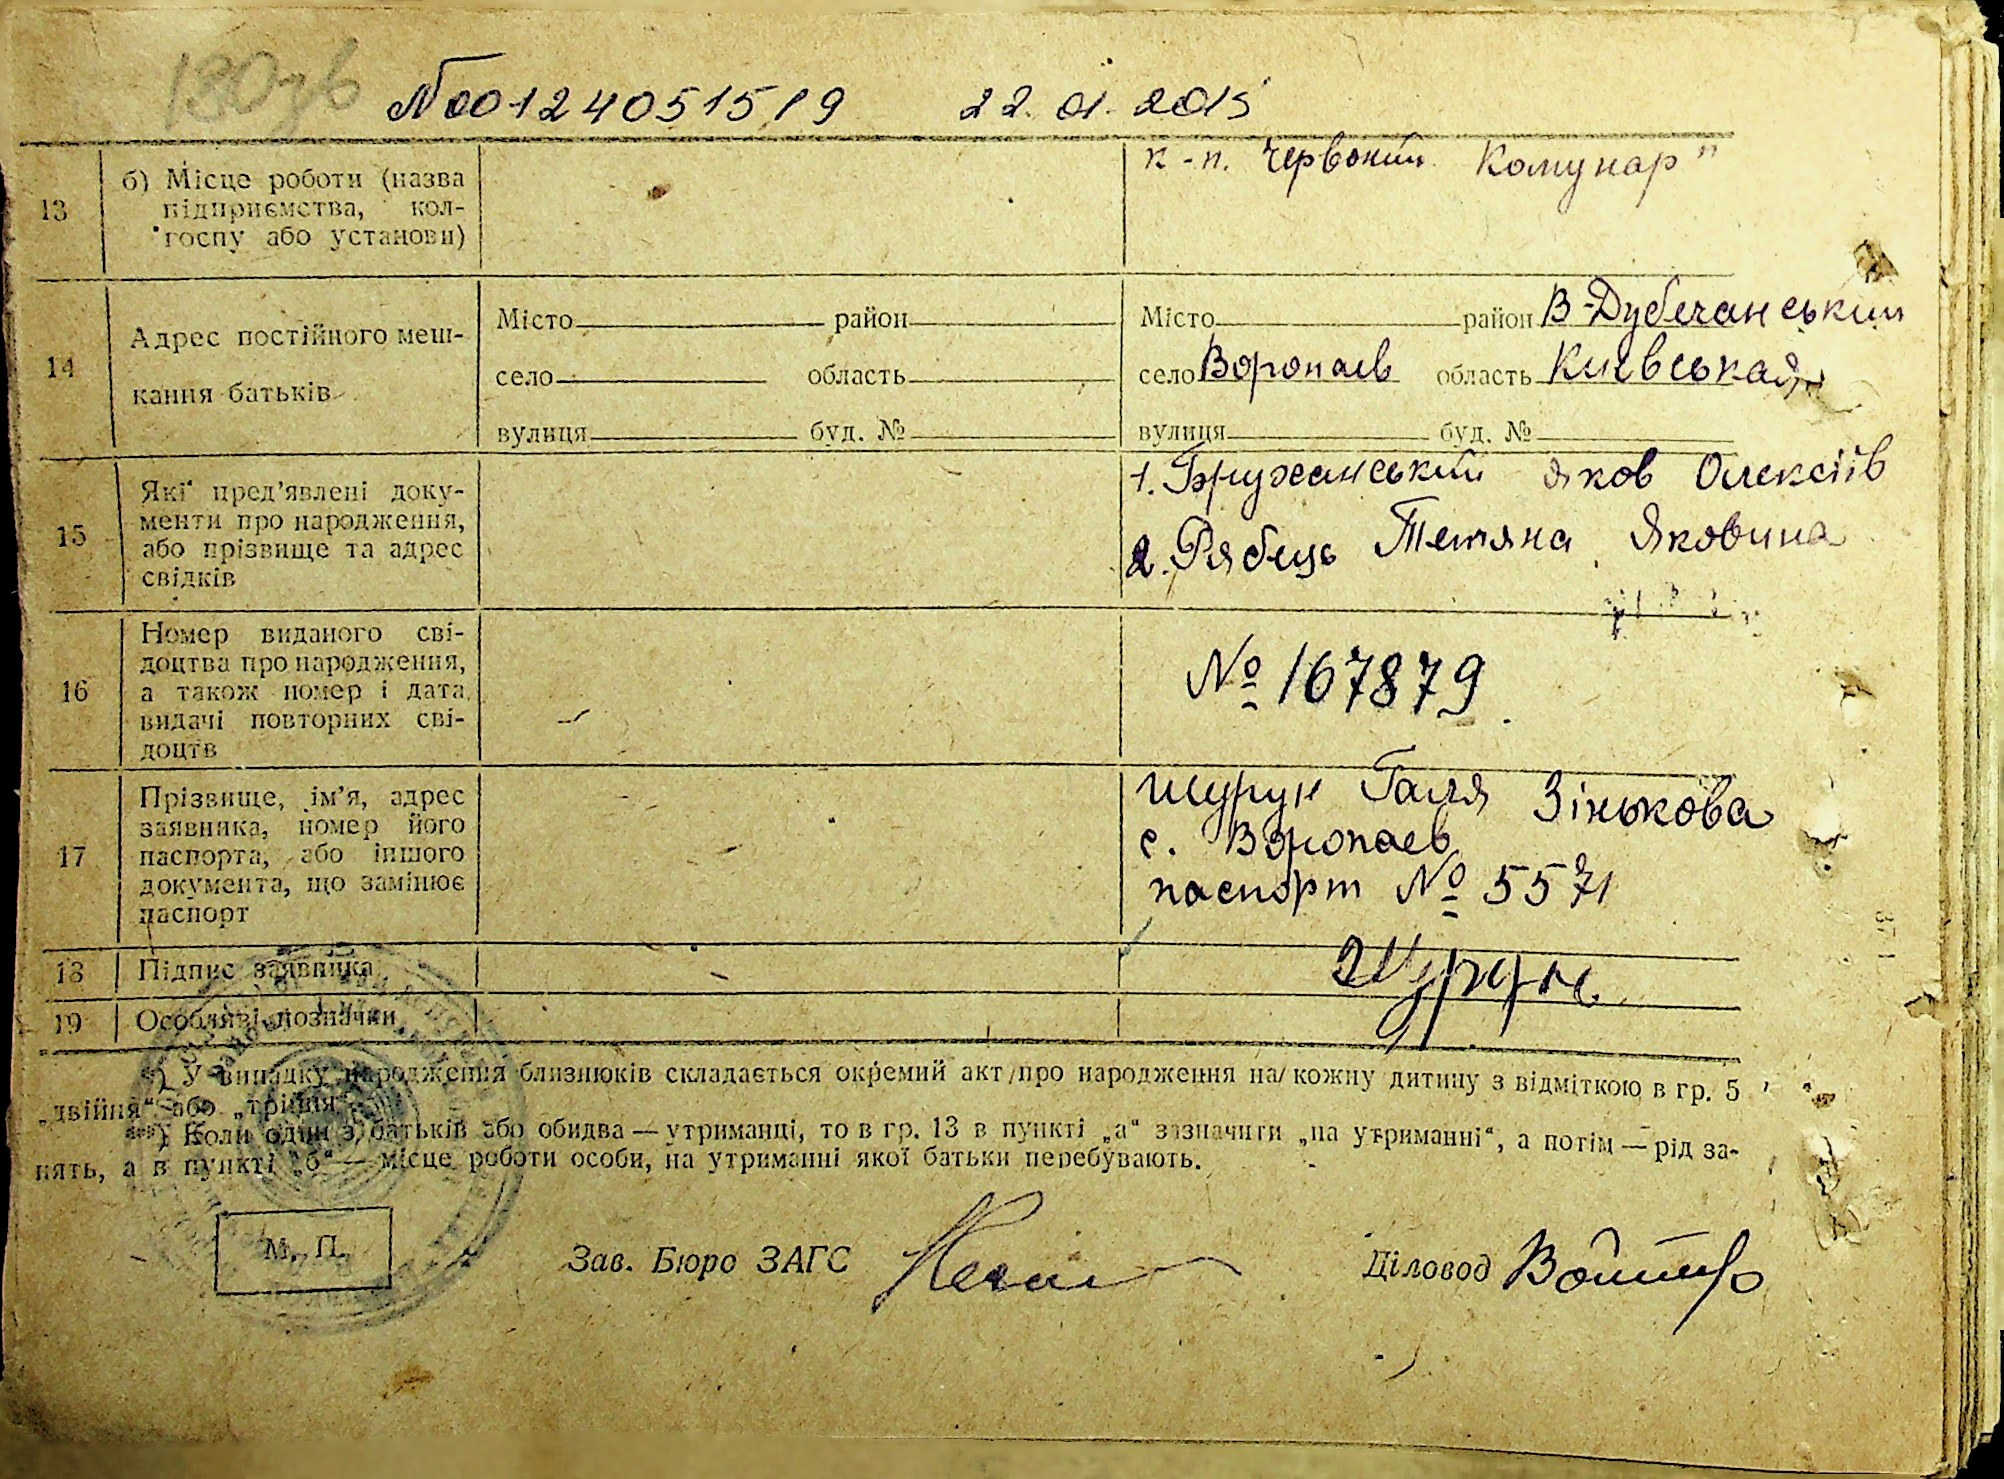 130зв
№00124051519 22.01.2015
13 б) Місце роботи (назва
підприємства, кол-
госпу або установи)
к-п. Червоний Комунар"
14 Адрес постійного меш-
кання батьків
Місто район
село область
вулиця буд. №
Місто район В-Дубечанський
село Воропаєв область Київськая
вулиця буд. №
15 Які пред'явлені доку-
менти про народження,
або прізвище та адрес
свідків
1. Бружанський Яков Олексіїв
2. Рябець Тетяна Яковина
16 Номер виданого сві-
доцтва про народження,
а також номер і дата
видачі повторних сві-
доцтв
№ 167879
17 Прізвище, ім'я, адрес
заявника, номер його
паспорта, або іншого
документа, що замінює
паспорт
Шурук Галя Зінькова
с. Воропаєв
паспорт № 5571
18 Підпис заявника
Шурук
19 Особливі позначки
*) У випадку народження близнюків складається окремий акт про народження на кожну дитину з відміткою в гр. 5
„двійня" або „трійня".
**) Коли один з батьків або обидва — утриманці, то в гр. 13 в пункті „а" зазначити „на утриманні", а потім — рід за-
нять, а в пункті „б" — місце роботи особи, на утриманні якої батьки перебувають.
М. П.
Зав. Бюро ЗАГС
Діловод